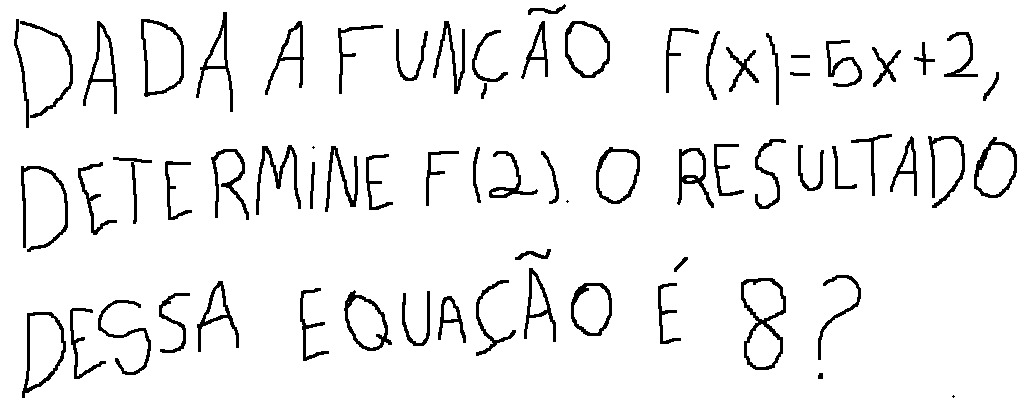 DADA A FUNÇÃO F(x)=5x+2,
DETERMINE F(2). O RESULTADO
DESSA EQUAÇÃO É 8?